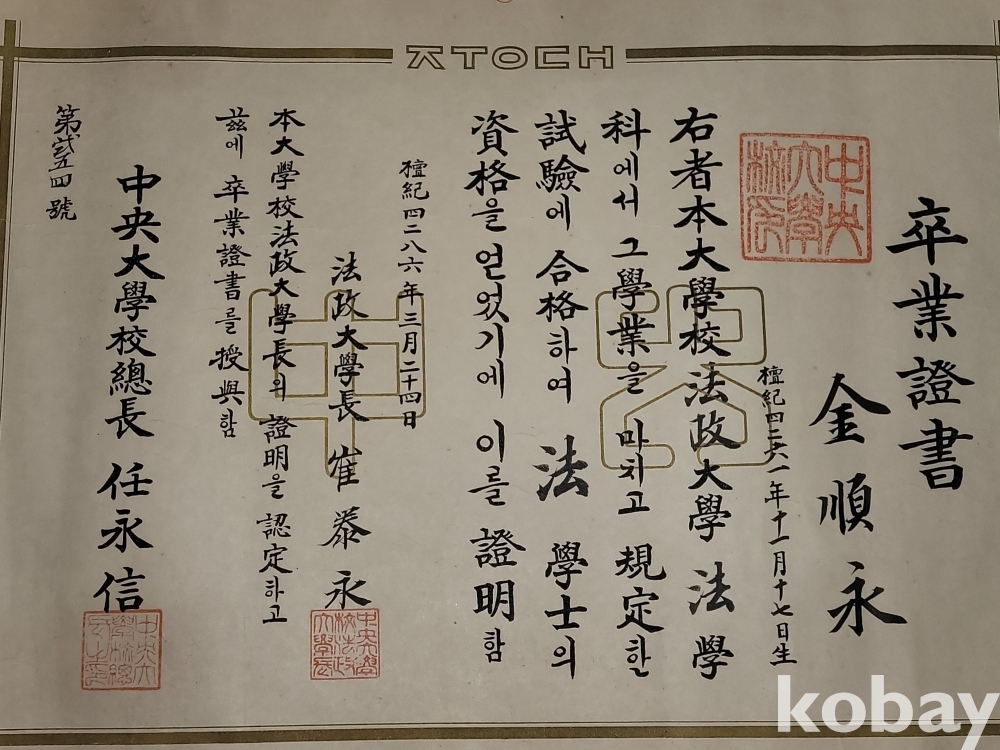 ㅈㅜㅇㄷㅐ
卒業證書
中央大學校印
金順永
檀紀四二六一年十一月十七日生
右者本大學校法政大學 法學
科에서 그 學業을 마치고 規定한
試驗에 合格하여 法 學士의
資格을 얻었기에 이를 證明함
檀紀四二八六年三月二十四日
法政大學長 崔泰永
中央大學校法政大學長
本大學校法政大學長의 證明을 認定하고
玆에 卒業證書를 授與함
中央大學校總長 任永信
第弍五四號
kobay